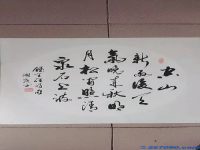 空山
新雨後天
氣晚来秋明
月松间照清
泉石上流